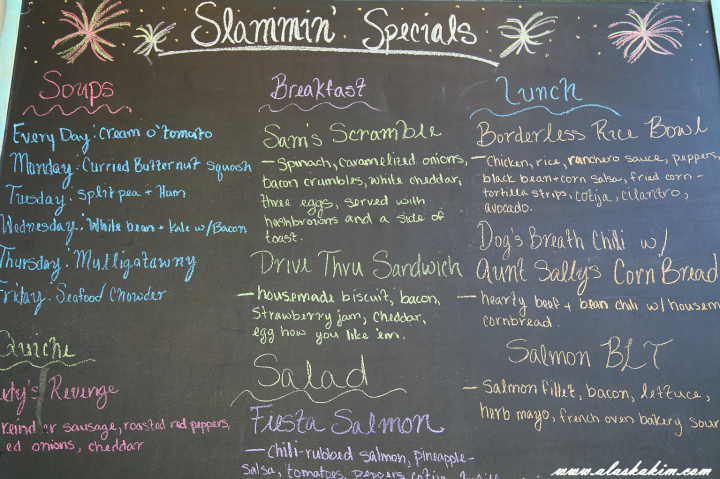 Slammin' Specials
Soups
Every Day: Cream o' tomato
Monday: Curried Butternut squash
Tuesday: Split pea + Ham
Wednesday: White bean + Kale w/Bacon
Thursday: Mulligatawny
Friday: Seafood Chowder
Quiche
Revenge
sausage, roasted red peppers,
onions, cheddar
Breakfast
Sam's Scramble
— Spinach, caramelized onions,
bacon crumbles, white cheddar,
three eggs, served with
hashbrowns and a side of
toast.
Drive Thru Sandwich
— housemade biscuit, bacon,
strawberry jam, cheddar,
egg how you like 'em.
Salad
Fiesta Salmon
— Chili-rubbed salmon, pineapple-
salsa, tomatoes, peppers, cotija,
Lunch
Borderless Rice Bowl
— Chicken, rice, ranchero sauce, peppers,
black bean + corn salsa, fried corn-
tortilla strips, cotija, cilantro,
avocado.
Dog's Breath Chili w/
Aunt Sally's Corn Bread
— hearty beef + bean chili w/ housem
cornbread.
Salmon BLT
— Salmon fillet, bacon, lettuce,
herb mayo, french oven bakery sour
www.alaskakim.com